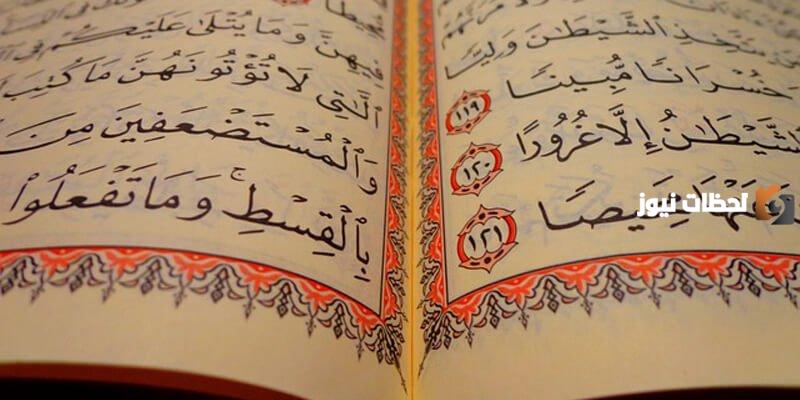 يَتَّخِذِ ٱلشَّيْطَٰنَ وَلِيًّا
خُسْرَانًا مُّبِينًا ١١٩
ٱلشَّيْطَٰنُ إِلَّا غُرُورًا ١٢٠
عَنْهَا مَحِيصًا ١٢١
لحظات نيوز
مُّحِيطًا
فِيهِنَّ وَمَا يُتْلَىٰ عَلَيْكُمْ فِى
ٱلَّٰتِى لَا تُؤْتُونَهُنَّ مَا كُتِبَ
وَٱلْمُسْتَضْعَفِينَ مِنَ
بِٱلْقِسْطِ ۚ وَمَا تَفْعَلُوا۟